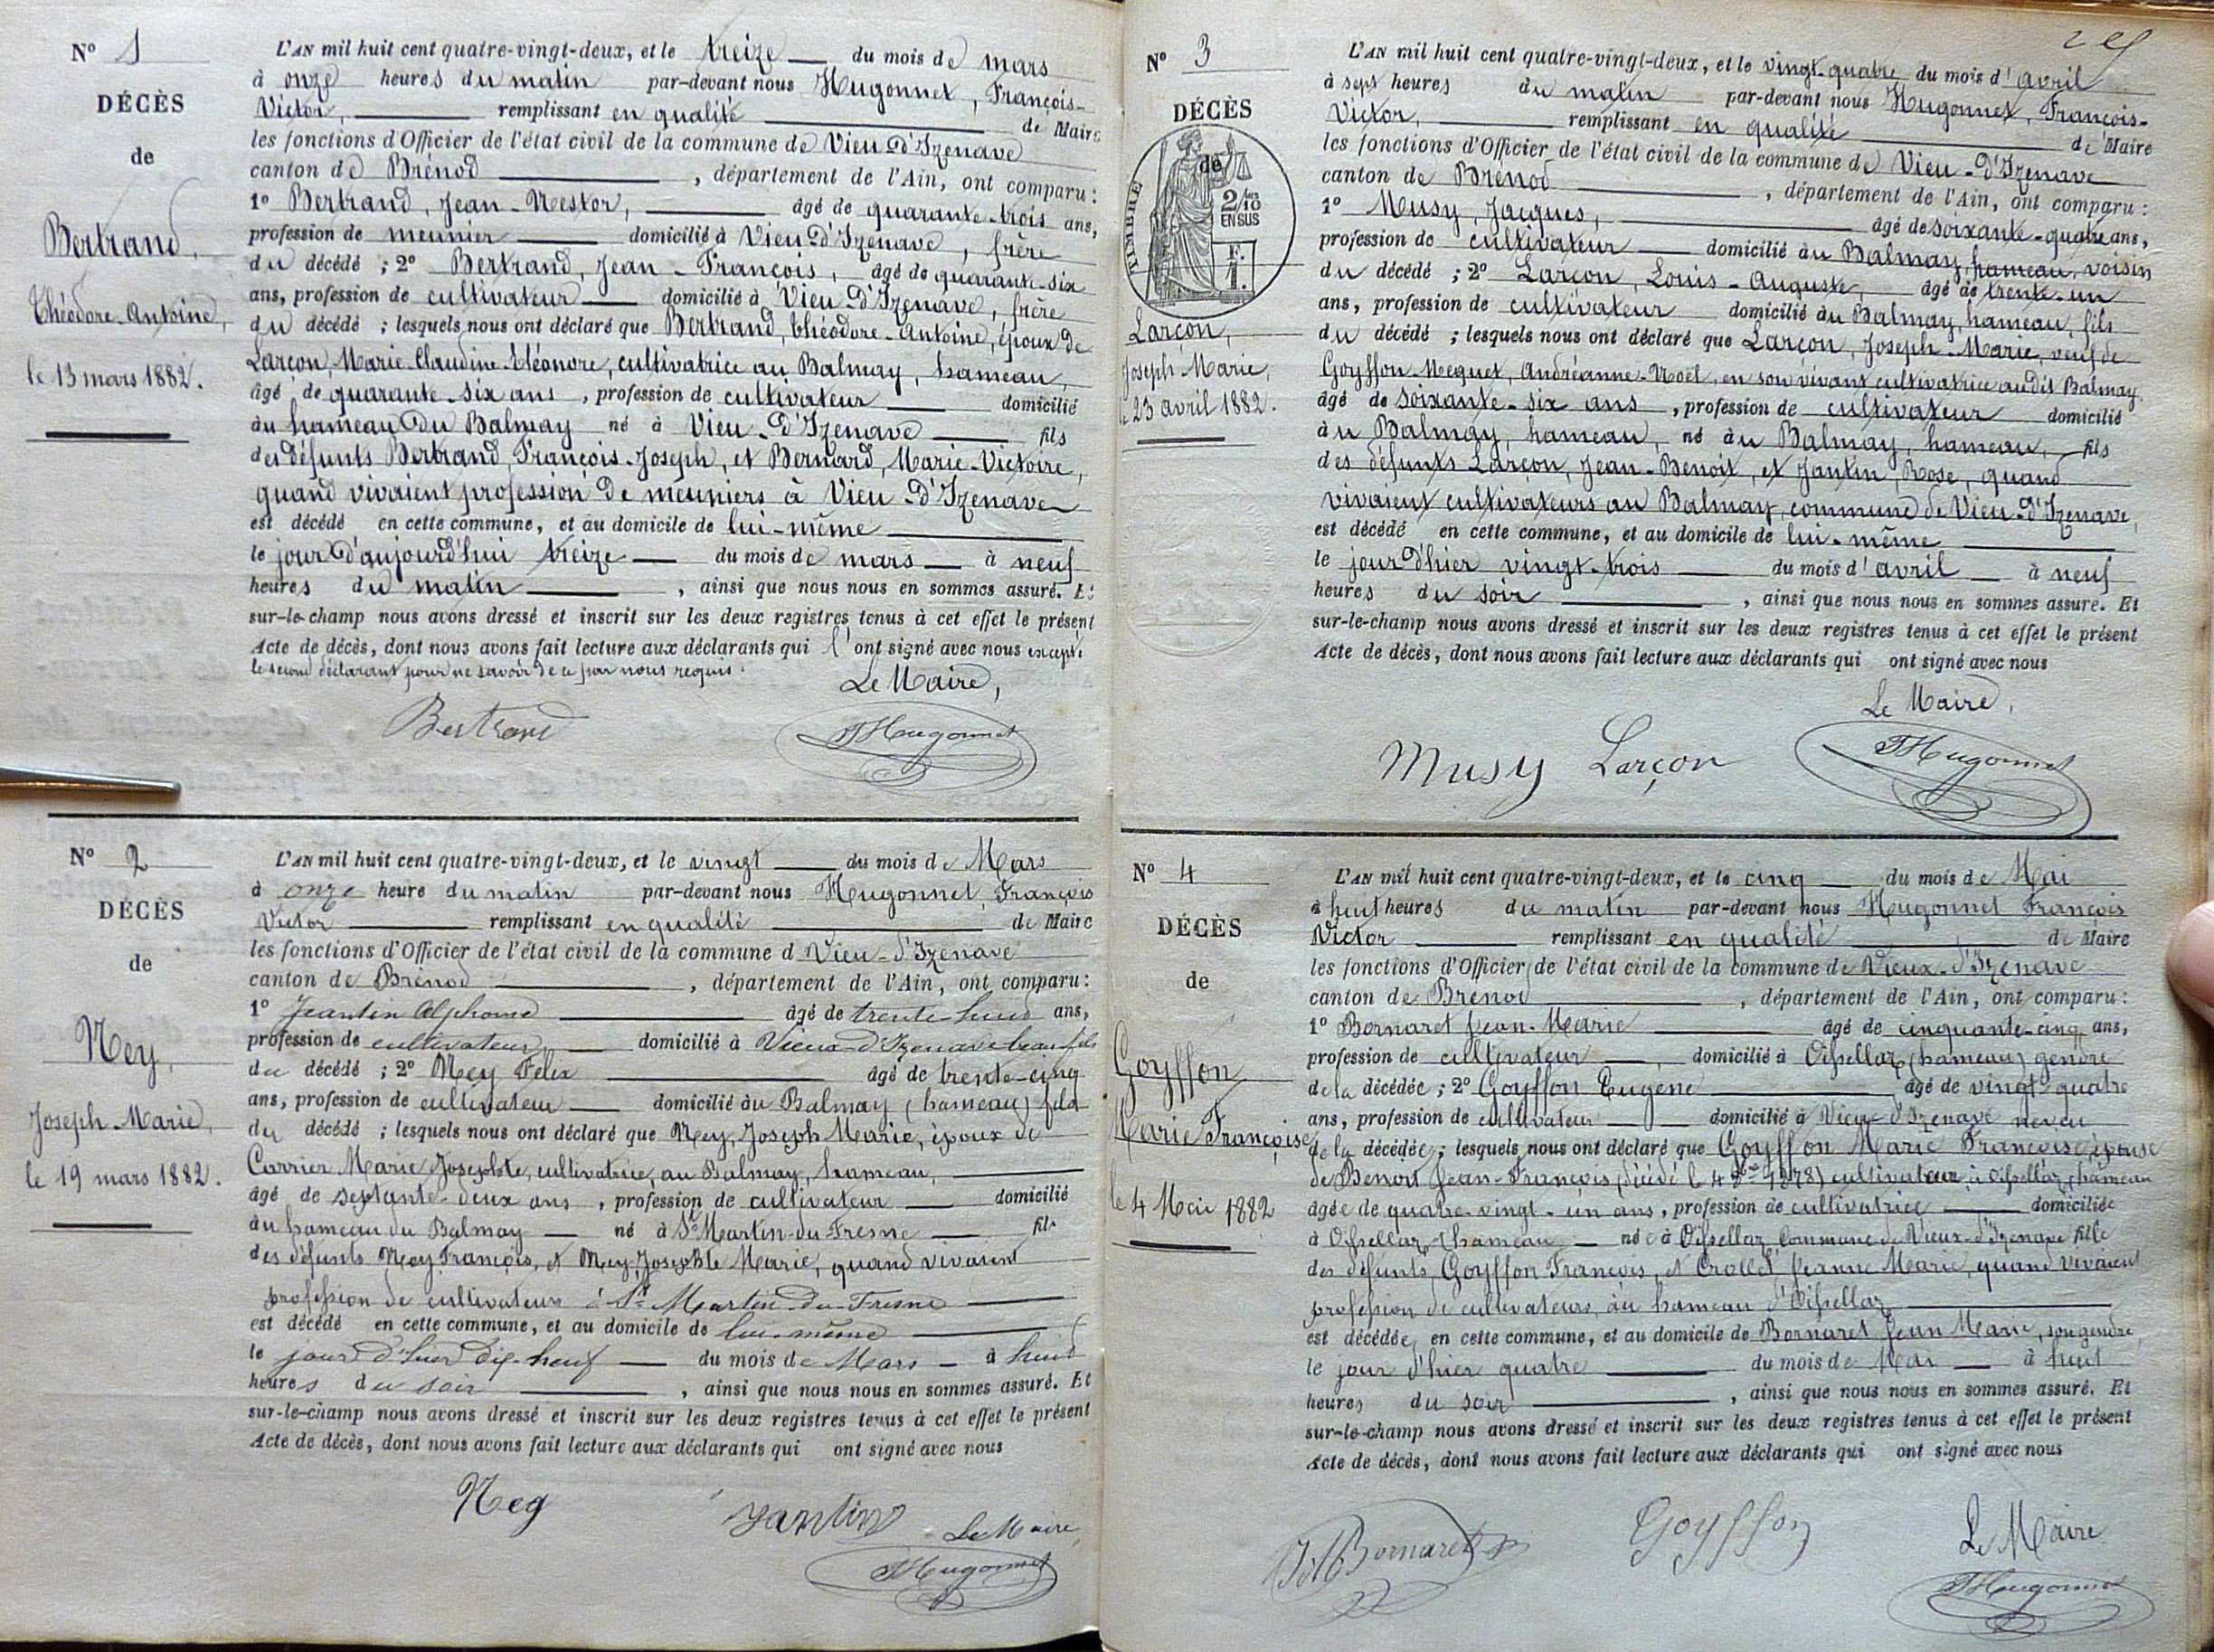 N° 1
DÉCÈS
de
Bertrand,
Théodore-Antoine,
le 13 mars 1882.
L'AN mil huit cent quatre-vingt-deux, et le treize du mois de mars
à onze heures du matin par-devant nous Hugonnet, François-
Victor, remplissant en qualité de Maire
les fonctions d'Officier de l'état civil de la commune de Vieu-d'Izenave
canton de Brénod, département de l'Ain, ont comparu :
1° Bertrand, Jean-Nestor, âgé de quarante-trois ans,
profession de meunier domicilié à Vieu-d'Izenave, frère
du décédé ; 2° Bertrand, Jean-François, âgé de quarante-six
ans, profession de cultivateur domicilié à Vieu-d'Izenave, frère
du décédé ; lesquels nous ont déclaré que Bertrand, théodore-Antoine, époux de
Larçon, Marie-Claudine-Eléonore, cultivatrice au Balmay, hameau,
âgé de quarante-six ans, profession de cultivateur domicilié
au hameau du Balmay né à Vieu-d'Izenave fils
des défunts Bertrand, François-Joseph, et Bernard, Marie-Victoire,
quand vivaient profession de meuniers à Vieu-d'Izenave
est décédé en cette commune, et au domicile de lui-même
le jour d'aujourd'hui treize du mois de mars à neuf
heures du matin, ainsi que nous nous en sommes assuré. Et
sur-le-champ nous avons dressé et inscrit sur les deux registres tenus à cet effet le présent
Acte de décès, dont nous avons fait lecture aux déclarants qui l'ont signé avec nous excepté
le second déclarant pour ne savoir de ce par nous requis.
Le Maire,
Bertrand Hugonnet
N° 2
DÉCÈS
de
Ney,
Joseph-Marie,
le 19 mars 1882.
L'AN mil huit cent quatre-vingt-deux, et le vingt du mois de Mars
à onze heure du matin par-devant nous Hugonnet, François
Victor remplissant en qualité de Maire
les fonctions d'Officier de l'état civil de la commune d Vieu-d'Izenave
canton de Brénod, département de l'Ain, ont comparu :
1° Jeantin Alphonse âgé de trente-huit ans,
profession de cultivateur domicilié à Vieux-d'Izenave beau-fils
du décédé ; 2° Ney Félix âgé de trente-cinq
ans, profession de cultivateur domicilié au Balmay (hameau) fils
du décédé ; lesquels nous ont déclaré que Ney, Joseph Marie, époux de
Carrier Marie Josephte, cultivatrice, au Balmay, hameau,
âgé de septante-deux ans, profession de cultivateur domicilié
au hameau du Balmay né à St Martin-du-Fresne fils
des défunts Ney François, et Ney Josephte Marie, quand vivaient
profession de cultivateurs à St Martin-du-Fresne
est décédé en cette commune, et au domicile de lui-même
le jour d'hier dix-neuf du mois de Mars à huit
heures du soir, ainsi que nous nous en sommes assuré. Et
sur-le-champ nous avons dressé et inscrit sur les deux registres tenus à cet effet le présent
Acte de décès, dont nous avons fait lecture aux déclarants qui ont signé avec nous
Ney Jantin Le Maire
Hugonnet
N° 3
DÉCÈS
de
TIMBRE
2/10 EN SUS
F. 1.
Larçon,
Joseph Marie,
le 23 avril 1882.
L'AN mil huit cent quatre-vingt-deux, et le vingt-quatre du mois d'avril
à sept heures du matin par-devant nous Hugonnet, François-
Victor, remplissant en qualité de Maire
les fonctions d'Officier de l'état civil de la commune de Vieu-d'Izenave
canton de Brénod, département de l'Ain, ont comparu :
1° Musy, Jacques, âgé de soixante-quatre ans,
profession de cultivateur domicilié au Balmay, hameau, voisin
du décédé ; 2° Larçon, Louis-Auguste, âgé de trente-un
ans, profession de cultivateur domicilié au Balmay, hameau, fils
du décédé ; lesquels nous ont déclaré que Larçon, Joseph-Marie, veuf de
Goyffon-Nequet, Andréanne-Noël, en son vivant cultivatrice audit Balmay
âgé de soixante-six ans, profession de cultivateur domicilié
au Balmay, hameau, né au Balmay, hameau, fils
des défunts Larçon, Jean-Benoit, et Jantin, Rose, quand
vivaient cultivateurs au Balmay, commune de Vieu-d'Izenave,
est décédé en cette commune, et au domicile de lui-même
le jour d'hier vingt-trois du mois d'avril à neuf
heures du soir, ainsi que nous nous en sommes assuré. Et
sur-le-champ nous avons dressé et inscrit sur les deux registres tenus à cet effet le présent
Acte de décès, dont nous avons fait lecture aux déclarants qui ont signé avec nous
Le Maire,
Musy Larçon Hugonnet
N° 4
DÉCÈS
de
Goyffon
Marie Françoise
le 4 Mai 1882
L'AN mil huit cent quatre-vingt-deux, et le cinq du mois de Mai
à huit heures du matin par-devant nous Hugonnet François
Victor remplissant en qualité de Maire
les fonctions d'Officier de l'état civil de la commune de Vieux-d'Izenave
canton de Brénod, département de l'Ain, ont comparu :
1° Bornaret Jean-Marie âgé de cinquante-cinq ans,
profession de cultivateur domicilié à Oissellaz (hameau) gendre
de la décédée ; 2° Goyffon Eugène âgé de vingt-quatre
ans, profession de cultivateur domicilié à Vieux-d'Izenave neveu
de la décédée ; lesquels nous ont déclaré que Goyffon Marie Françoise, épouse
de Benoit Jean-François, (décédé le 4 1878) cultivateur à Oissellaz, hameau
âgée de quatre-vingt-un ans, profession de cultivatrice domiciliée
à Oisselaz, hameau née à Oisselaz commune de Vieux-d'Izenave fille
des défunts, Goyffon François, et Crollet Jeanne Marie, quand vivaient
profession de cultivateurs, au hameau d'Oisselaz
est décédée, en cette commune, et au domicile de Bornaret Jean Marie, son gendre
le jour d'hier quatre du mois de Mai à huit
heures du soir, ainsi que nous nous en sommes assuré. Et
sur-le-champ nous avons dressé et inscrit sur les deux registres tenus à cet effet le présent
Acte de décès, dont nous avons fait lecture aux déclarants qui ont signé avec nous
JM Bornaret Goyffon Le Maire
Hugonnet